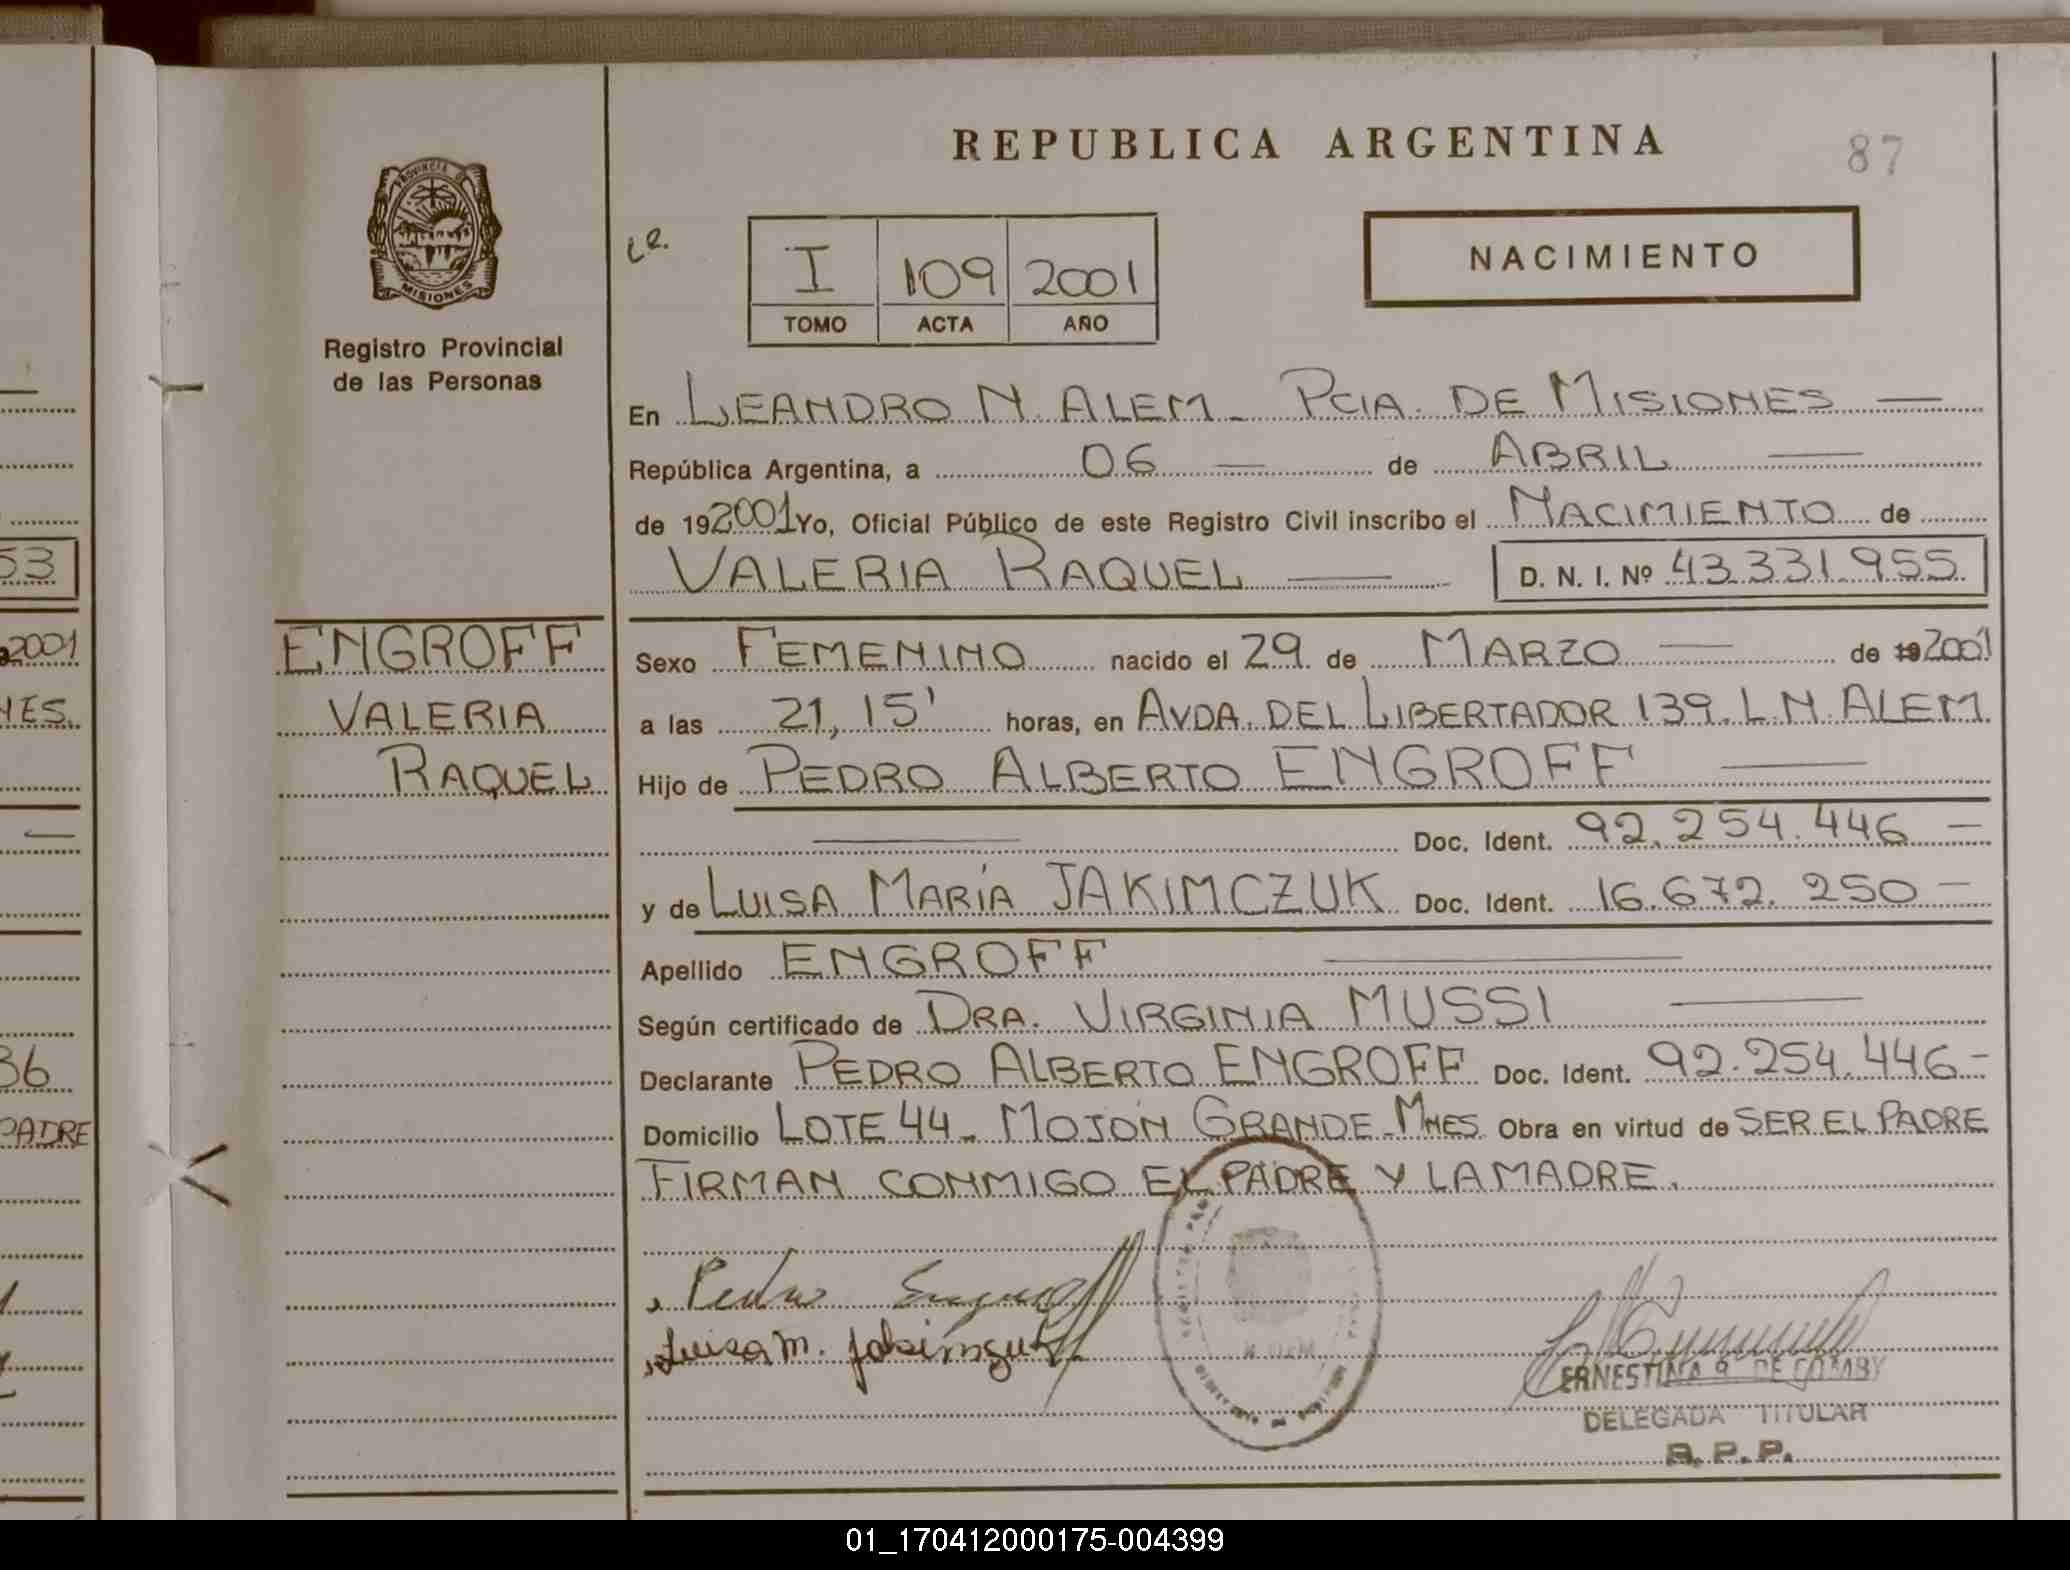 REPUBLICA ARGENTINA
87
PROVINCIA DE
MISIONES
Registro Provincial
de las Personas
NACIMIENTO
I 109 2001
TOMO ACTA AÑO
En LEANDRO N. ALEM - PCIA. DE MISIONES —
República Argentina, a 06 — de ABRIL —
de 192001 Yo, Oficial Público de este Registro Civil inscribo el NACIMIENTO de
VALERIA RAQUEL — D. N. I. Nº 43.331.955
ENGROFF
VALERIA
RAQUEL
Sexo FEMENINO nacido el 29 de MARZO — de 192001
a las 21,15' horas, en AVDA. DEL LIBERTADOR 139. L.N. ALEM
Hijo de PEDRO ALBERTO ENGROFF —
— Doc. Ident. 92.254.446.—
y de LUISA MARÍA JAKIMCZUK Doc. Ident. 16.672.250 —
Apellido ENGROFF —
Según certificado de DRA. VIRGINIA MUSSI —
Declarante PEDRO ALBERTO ENGROFF Doc. Ident. 92.254.446-
Domicilio LOTE 44 - MOJÓN GRANDE - MNES. Obra en virtud de SER EL PADRE
FIRMAN CONMIGO EL PADRE Y LA MADRE.
Pedro Engroff
Luisa M. Jakimczuk
ERNESTINA R. DE COMBY
DELEGADA TITULAR
R. P. P.
53
2001
NES.
36
PADRE
01_170412000175-004399